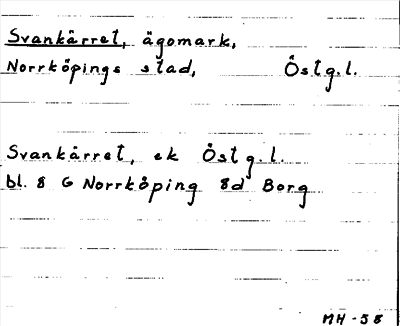 Svankärret, ägomark,
Norrköpings stad, Östg.l.
Svankärret, ek Östg.l.
bl. 8 G Norrköping 8d Borg
MH-58